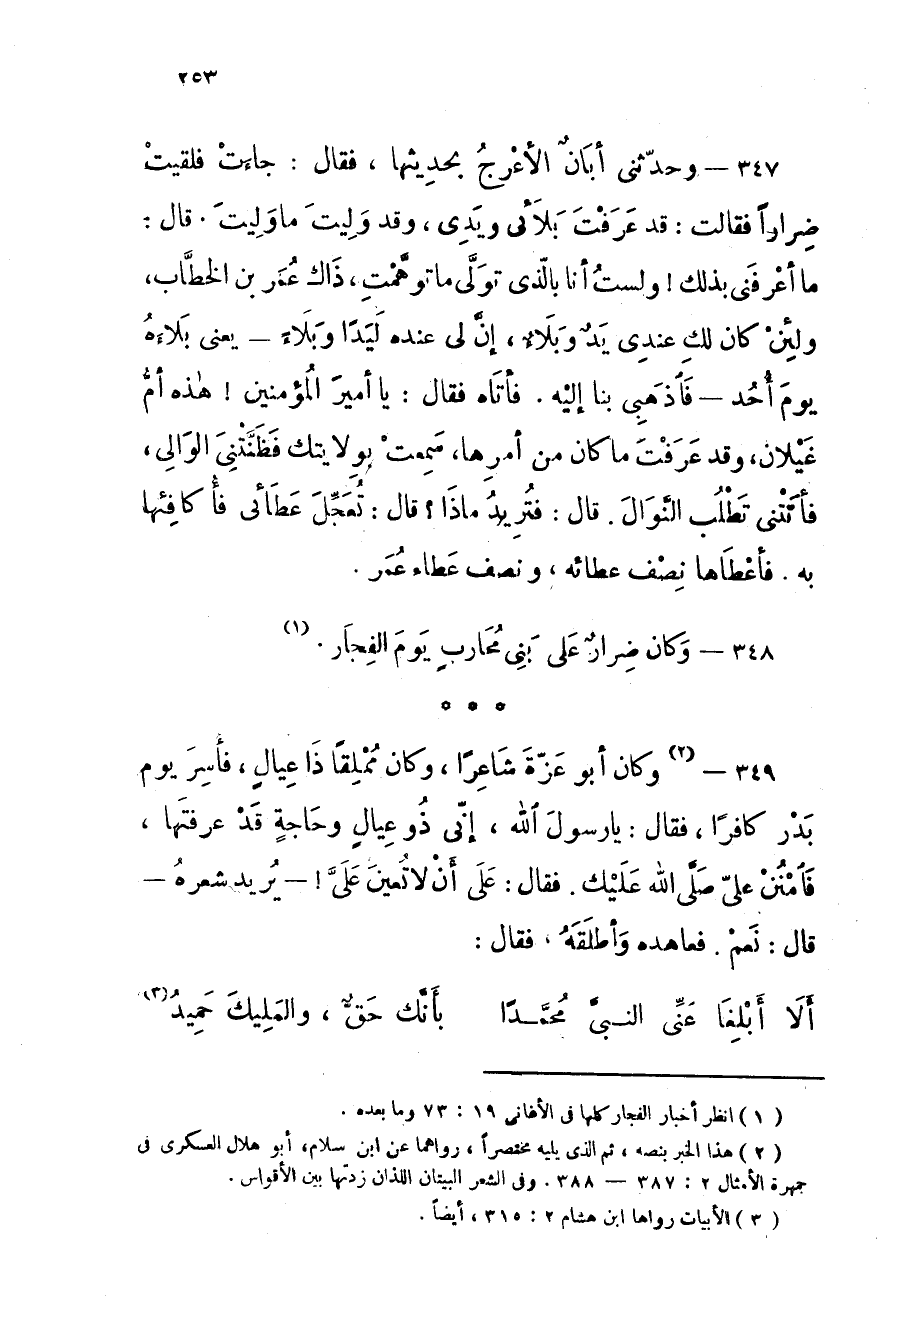 ٢٥٣
٣٤٧ — وحدّثنى أبَانٌ الأعْرجُ بحديثها ، فقال : جاءتْ فلقيتْ
ضِراراً فقالت : قد عَرَفْتَ بَلاَئى ويَدِى ، وقد وَلِيتَ ماوَلِيتَ . قال :
ما أعْرفَنى بذلك ! ولستُ أنا بالّذى تولَّى ماتوهَّمْتِ ، ذَاك عُمَر بن الخطَّاب ،
ولئِنْ كان لكِ عندِى يَدٌ وبَلَاءٌ ، إنَّ لى عنده لَيَدًا وبَلَاءً — يعنى بَلاءهُ
يومَ أُحُد — فَاذهَبِى بنا إليْه . فأتَاه فقال : يا أميرَ المُؤمنين ! هٰذه أمُّ
غَيْلان ، وقد عَرَفْتَ ما كان من أمرِها ، سَمِعتْ بِولايتك فظَنَّتْنِىَ الوَالِى ،
فأتَتْنى تَطْلُب النَّوَالَ . قال : فتُريدُ ماذَا ؟ قال : تُعَجِّلَ عَطَائى فأُكافِئها
به . فأعْطَاها نِصْف عطائه ، ونصف عَطاء عُمَر .
٣٤٨ — وَكان ضِرارٌ عَلى بَنِى مُحَاربٍ يَومَ الفِجَار . (١)
* * *
٣٤٩ — (٢) وكان أبو عَزّةَ شَاعِرًا ، وكان مُمْلِقًا ذَا عِيالٍ ، فأُسِرَ يوم
بَدْر كافرًا ، فقال : يارسولَ ٱلله ، إنّى ذُو عِيالٍ وحَاجةٍ قَدْ عرفتَها ،
فَامْنُنْ علىّ صَلَّى الله عَلَيْك . فقال : عَلَى أَنْ لاتُعينَ عَلَىَّ ! — يُريد شعرهُ —
قال : نَعمْ . فعاهده وَأطلَقَهُ ، فقال :
أَلَا أَبْلِغَا عَنِّى النـبىَّ مُحَمَّـدًا بأَنَّك حَقٌّ ، والمَلِيكَ حَمِيدُ (٣)
( ١ ) انظر أخبار الفجار كلها فى الأغانى ١٩ : ٧٣ وما بعده .
( ٢ ) هذا الخبر بنصه ، ثم الذى يليه مختصراً ، رواهما عن ابن سلام، أبو هلال العسكرى فى
جمهرة الأمثال ٢ : ٣٨٧ — ٣٨٨ . وفى الشعر البيتان اللذان زدتها بين الأقواس .
( ٣ ) الأبيات رواها ابن هشام ٢ : ٣١٥ ، أيضاً .